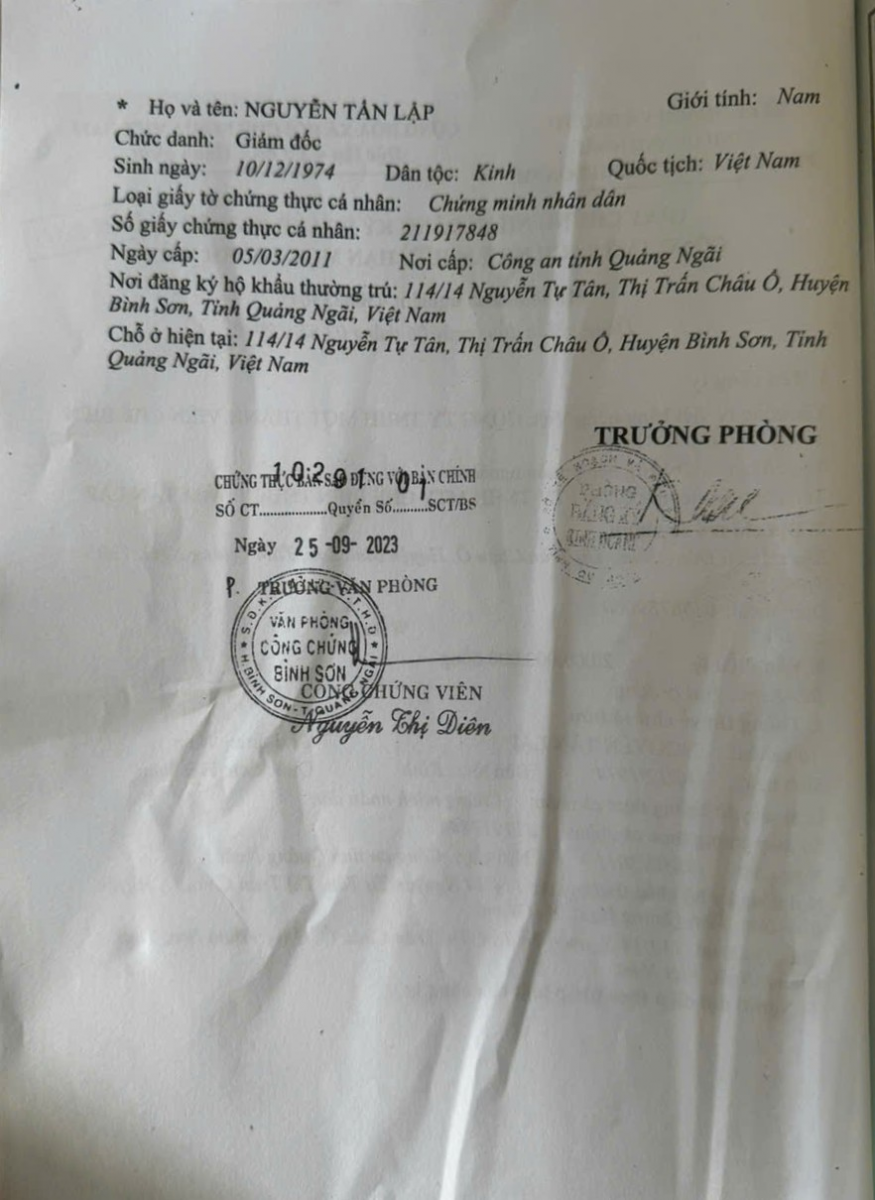 * Họ và tên: NGUYỄN TẤN LẬP Giới tính: Nam
Chức danh: Giám đốc
Sinh ngày: 10/12/1974 Dân tộc: Kinh Quốc tịch: Việt Nam
Loại giấy tờ chứng thực cá nhân: Chứng minh nhân dân
Số giấy chứng thực cá nhân: 211917848
Ngày cấp: 05/03/2011 Nơi cấp: Công an tỉnh Quảng Ngãi
Nơi đăng ký hộ khẩu thường trú: 114/14 Nguyễn Tự Tân, Thị Trấn Châu Ổ, Huyện
Bình Sơn, Tỉnh Quảng Ngãi, Việt Nam
Chỗ ở hiện tại: 114/14 Nguyễn Tự Tân, Thị Trấn Châu Ổ, Huyện Bình Sơn, Tỉnh
Quảng Ngãi, Việt Nam
TRƯỞNG PHÒNG
PHÒNG
ĐĂNG KÝ
KINH DOANH
CHỨNG THỰC BẢN SAO ĐÚNG VỚI BẢN CHÍNH
10201 01
SỐ CT..................Quyển Số.........SCT/BS
Ngày 25-09-2023
P. TRƯỞNG VĂN PHÒNG
VĂN PHÒNG
CÔNG CHỨNG
BÌNH SƠN
H.BÌNH SƠN-T.QUẢNG NGÃI
CÔNG CHỨNG VIÊN
Nguyễn Thị Diên